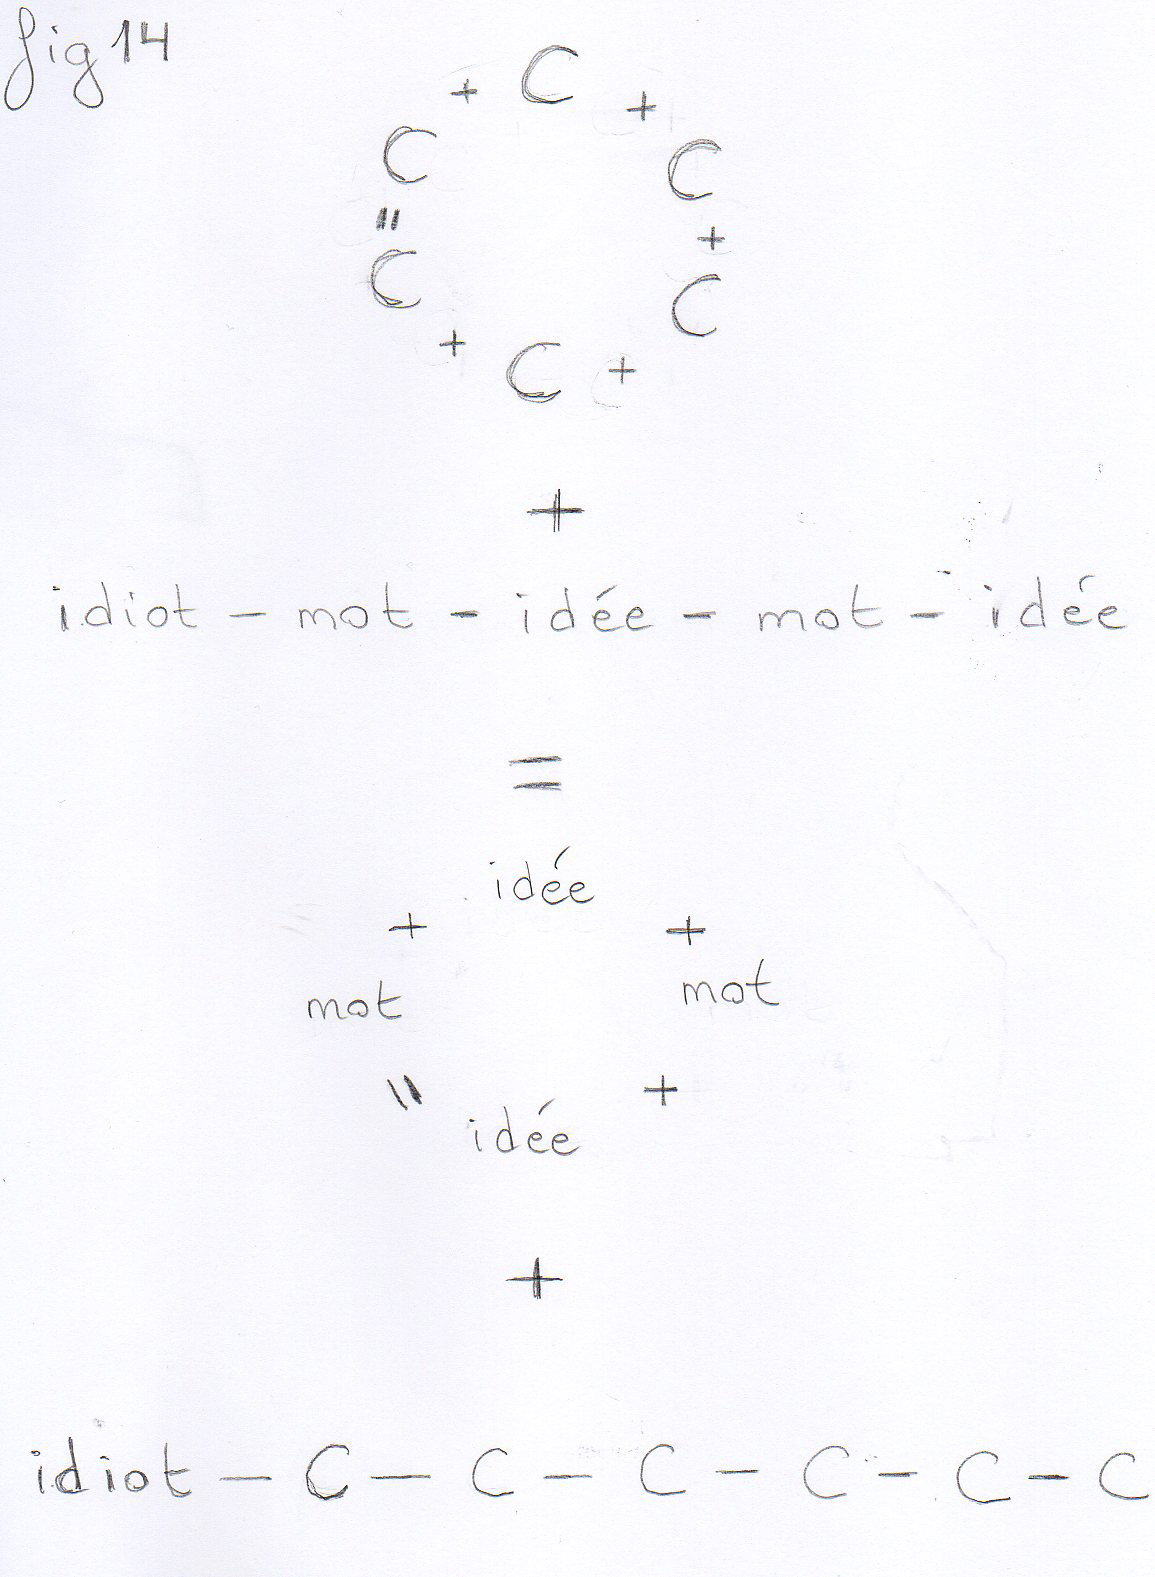 fig 14
+ C +
C C
=
+
C C
+ C +
+
idiot - mot - idée - mot - idée
=
idée
+ +
mot mot
= +
idée
+
idiot - C - C - C - C - C - C